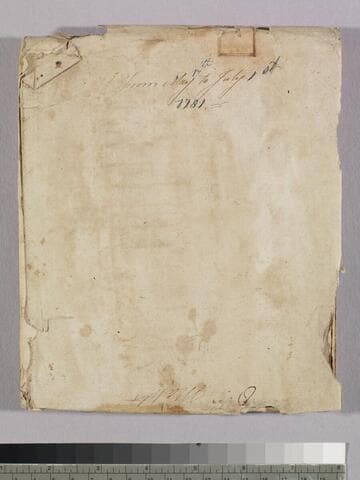 from May 7th to July 1st
1781.